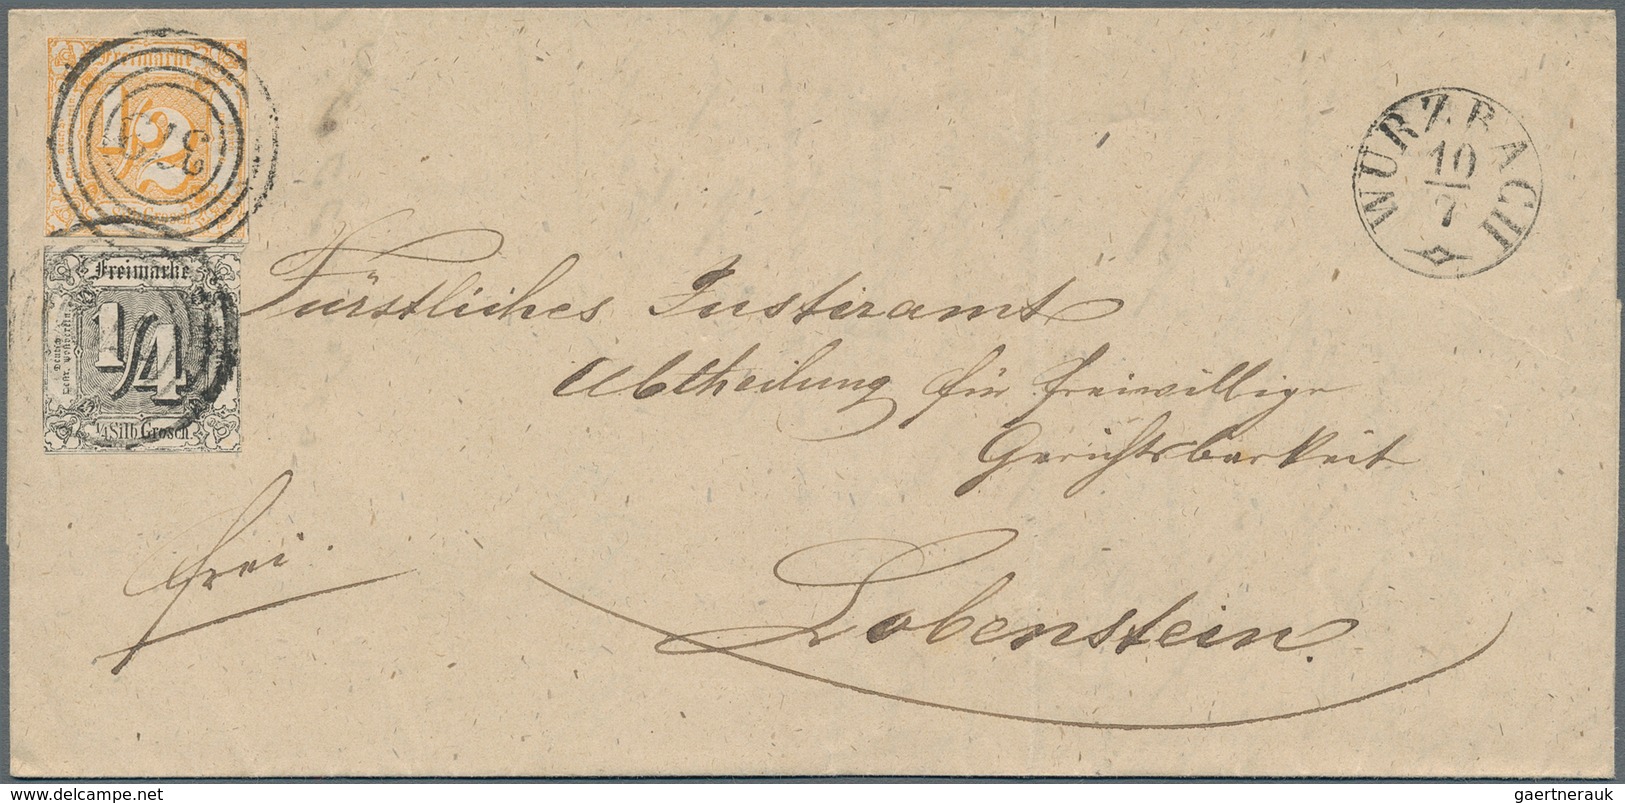 Freimarke
1/2
Grosch.
Freimarke
1/4
1/4 Silb Grosch.
WURZBACH
10/7
Fürstliches Justizamt
Abtheilung für freiwillige
Gerichtsbarkeit
frei.
Lobenstein.
www.delcampe.net
gaertnerauk